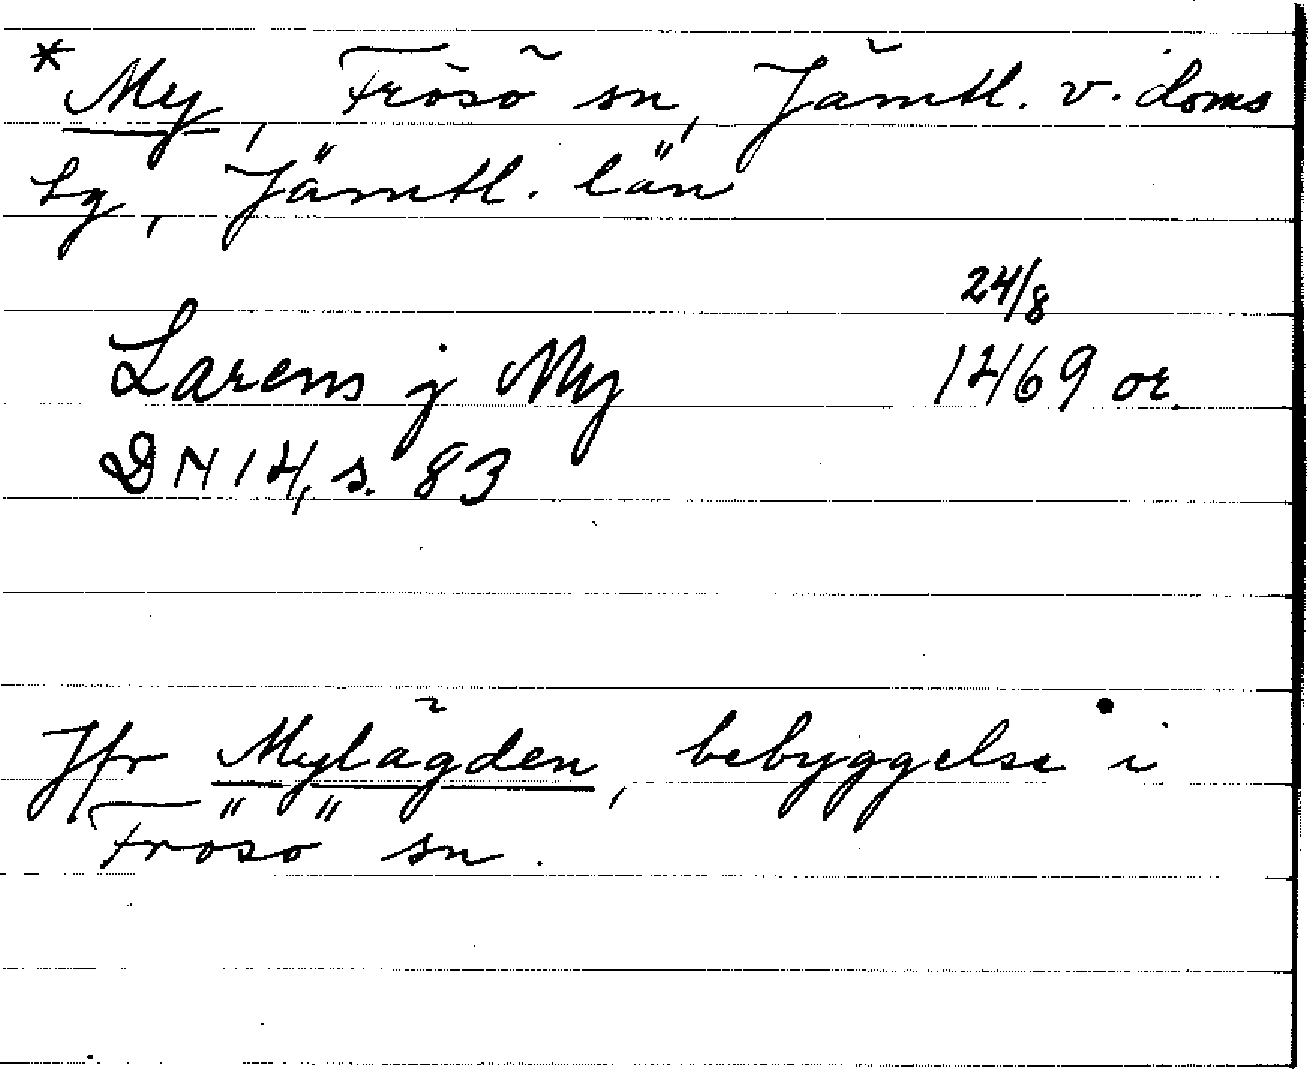 * My, Frösö sn, Jämtl. v. doms
sg, Jämtl. län
24/8
Larens j My 1469 or.
DN 14, s. 83
Jfr Mylägden, bebyggelse i
Frösö sn.